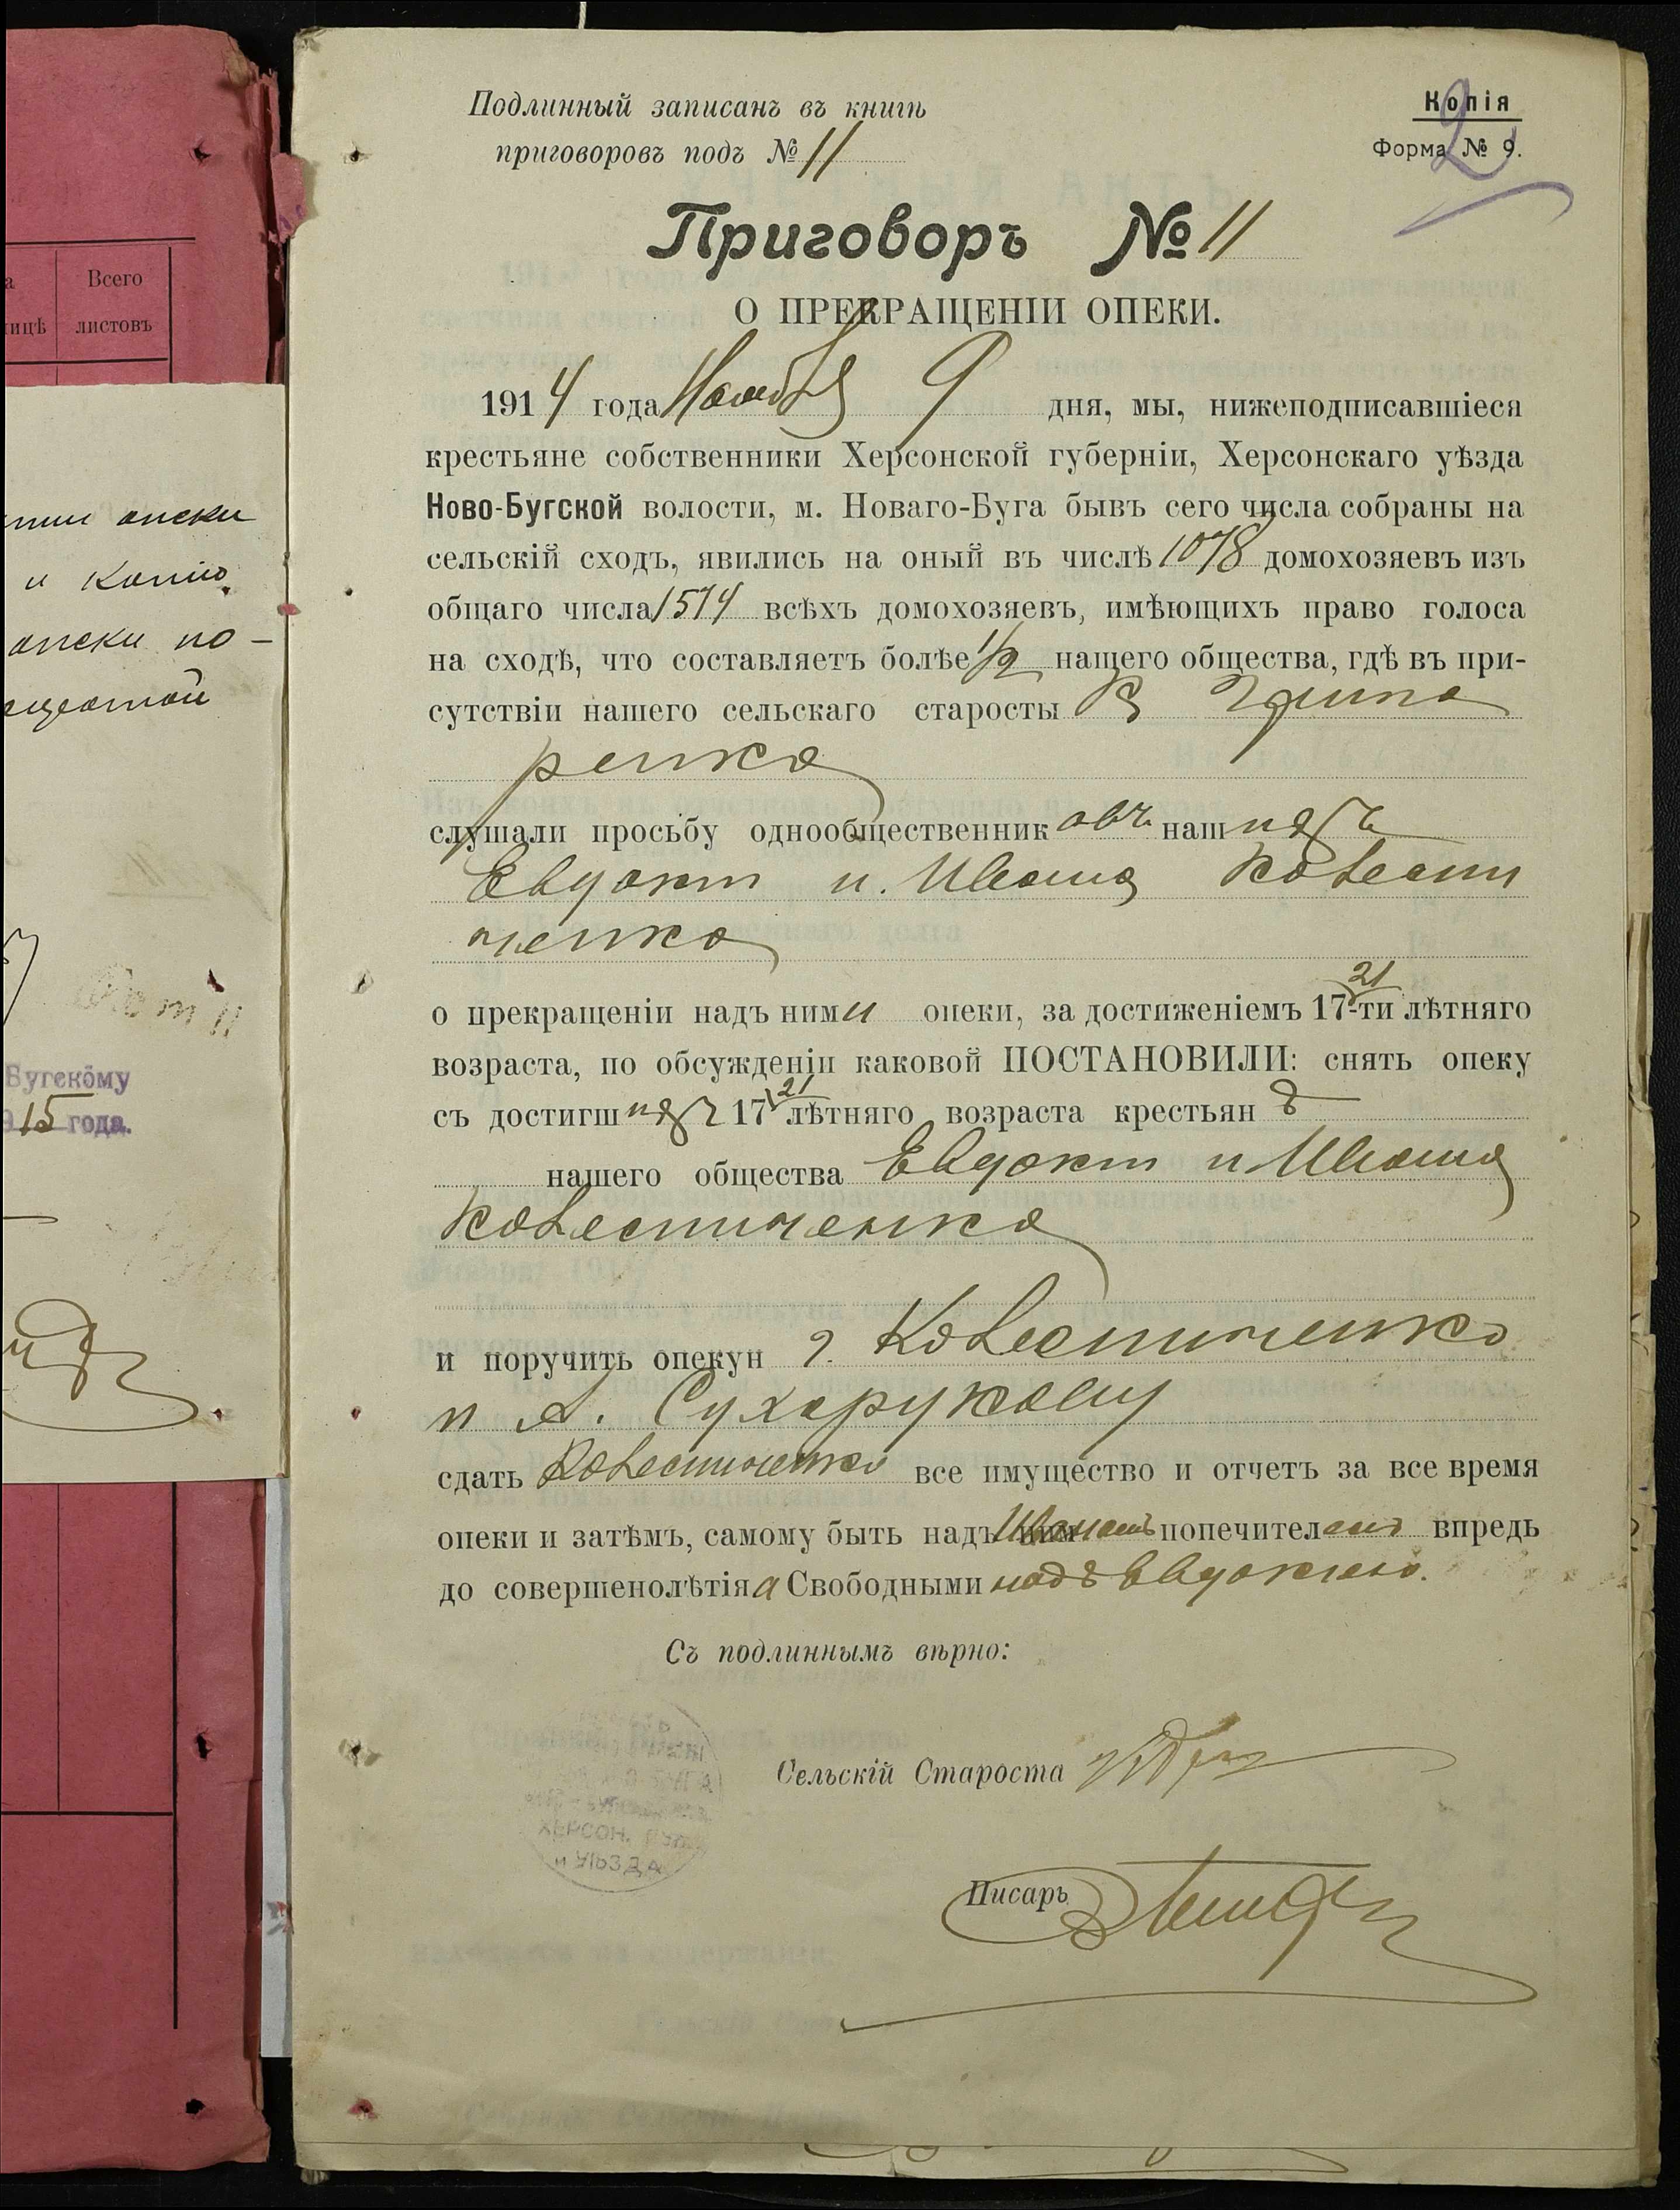 Всего
листовъ
ицѣ
опеки
и копию
опеки по-
Бугскому
15 года.
Подлинный записанъ въ книгѣ
приговоровъ подъ № 11
Копія
Форма № 9.
2
Приговоръ № 11
О ПРЕКРАЩЕНІИ ОПЕКИ.
1914 года Ноября 9 дня, мы, нижеподписавшіеся
крестьяне собственники Херсонской губерніи, Херсонскаго уѣзда
Ново-Бугской волости, м. Новаго-Буга бывъ сего числа собраны на
сельскій сходъ, явились на оный въ числѣ 1078 домохозяевъ изъ
общаго числа 1574 всѣхъ домохозяевъ, имѣющихъ право голоса
на сходѣ, что составляетъ болѣе 1/2 нащего общества, гдѣ въ при-
сутствіи нашего сельскаго старосты
ренка
слушали просьбу однообщественник овъ наш ихъ
Евдокіи и Ивана Колесни
ченко
о прекращеніи надъ ними опеки, за достиженіемъ 17-21 ти лѣтняго
возраста, по обсужденіи каковой ПОСТАНОВИЛИ: снять опеку
съ достигш ихъ 17 21 лѣтняго возраста крестьян ъ
нашего общества Евдокіи и Ивана
Колесниченко
и поручить опекун Г. Колесниченко
и А. Сухорукову
сдать Колесниченко все имущество и отчетъ за все время
опеки и затѣмъ, самому быть надъ Иваномъ попечителемъ впредь
до совершенолѣтія а Свободными надъ Евдокіею.
Съ подлиннымъ вѣрно:
Сельскій Староста
ХЕРСОН.
и УѢЗДА
Писарь